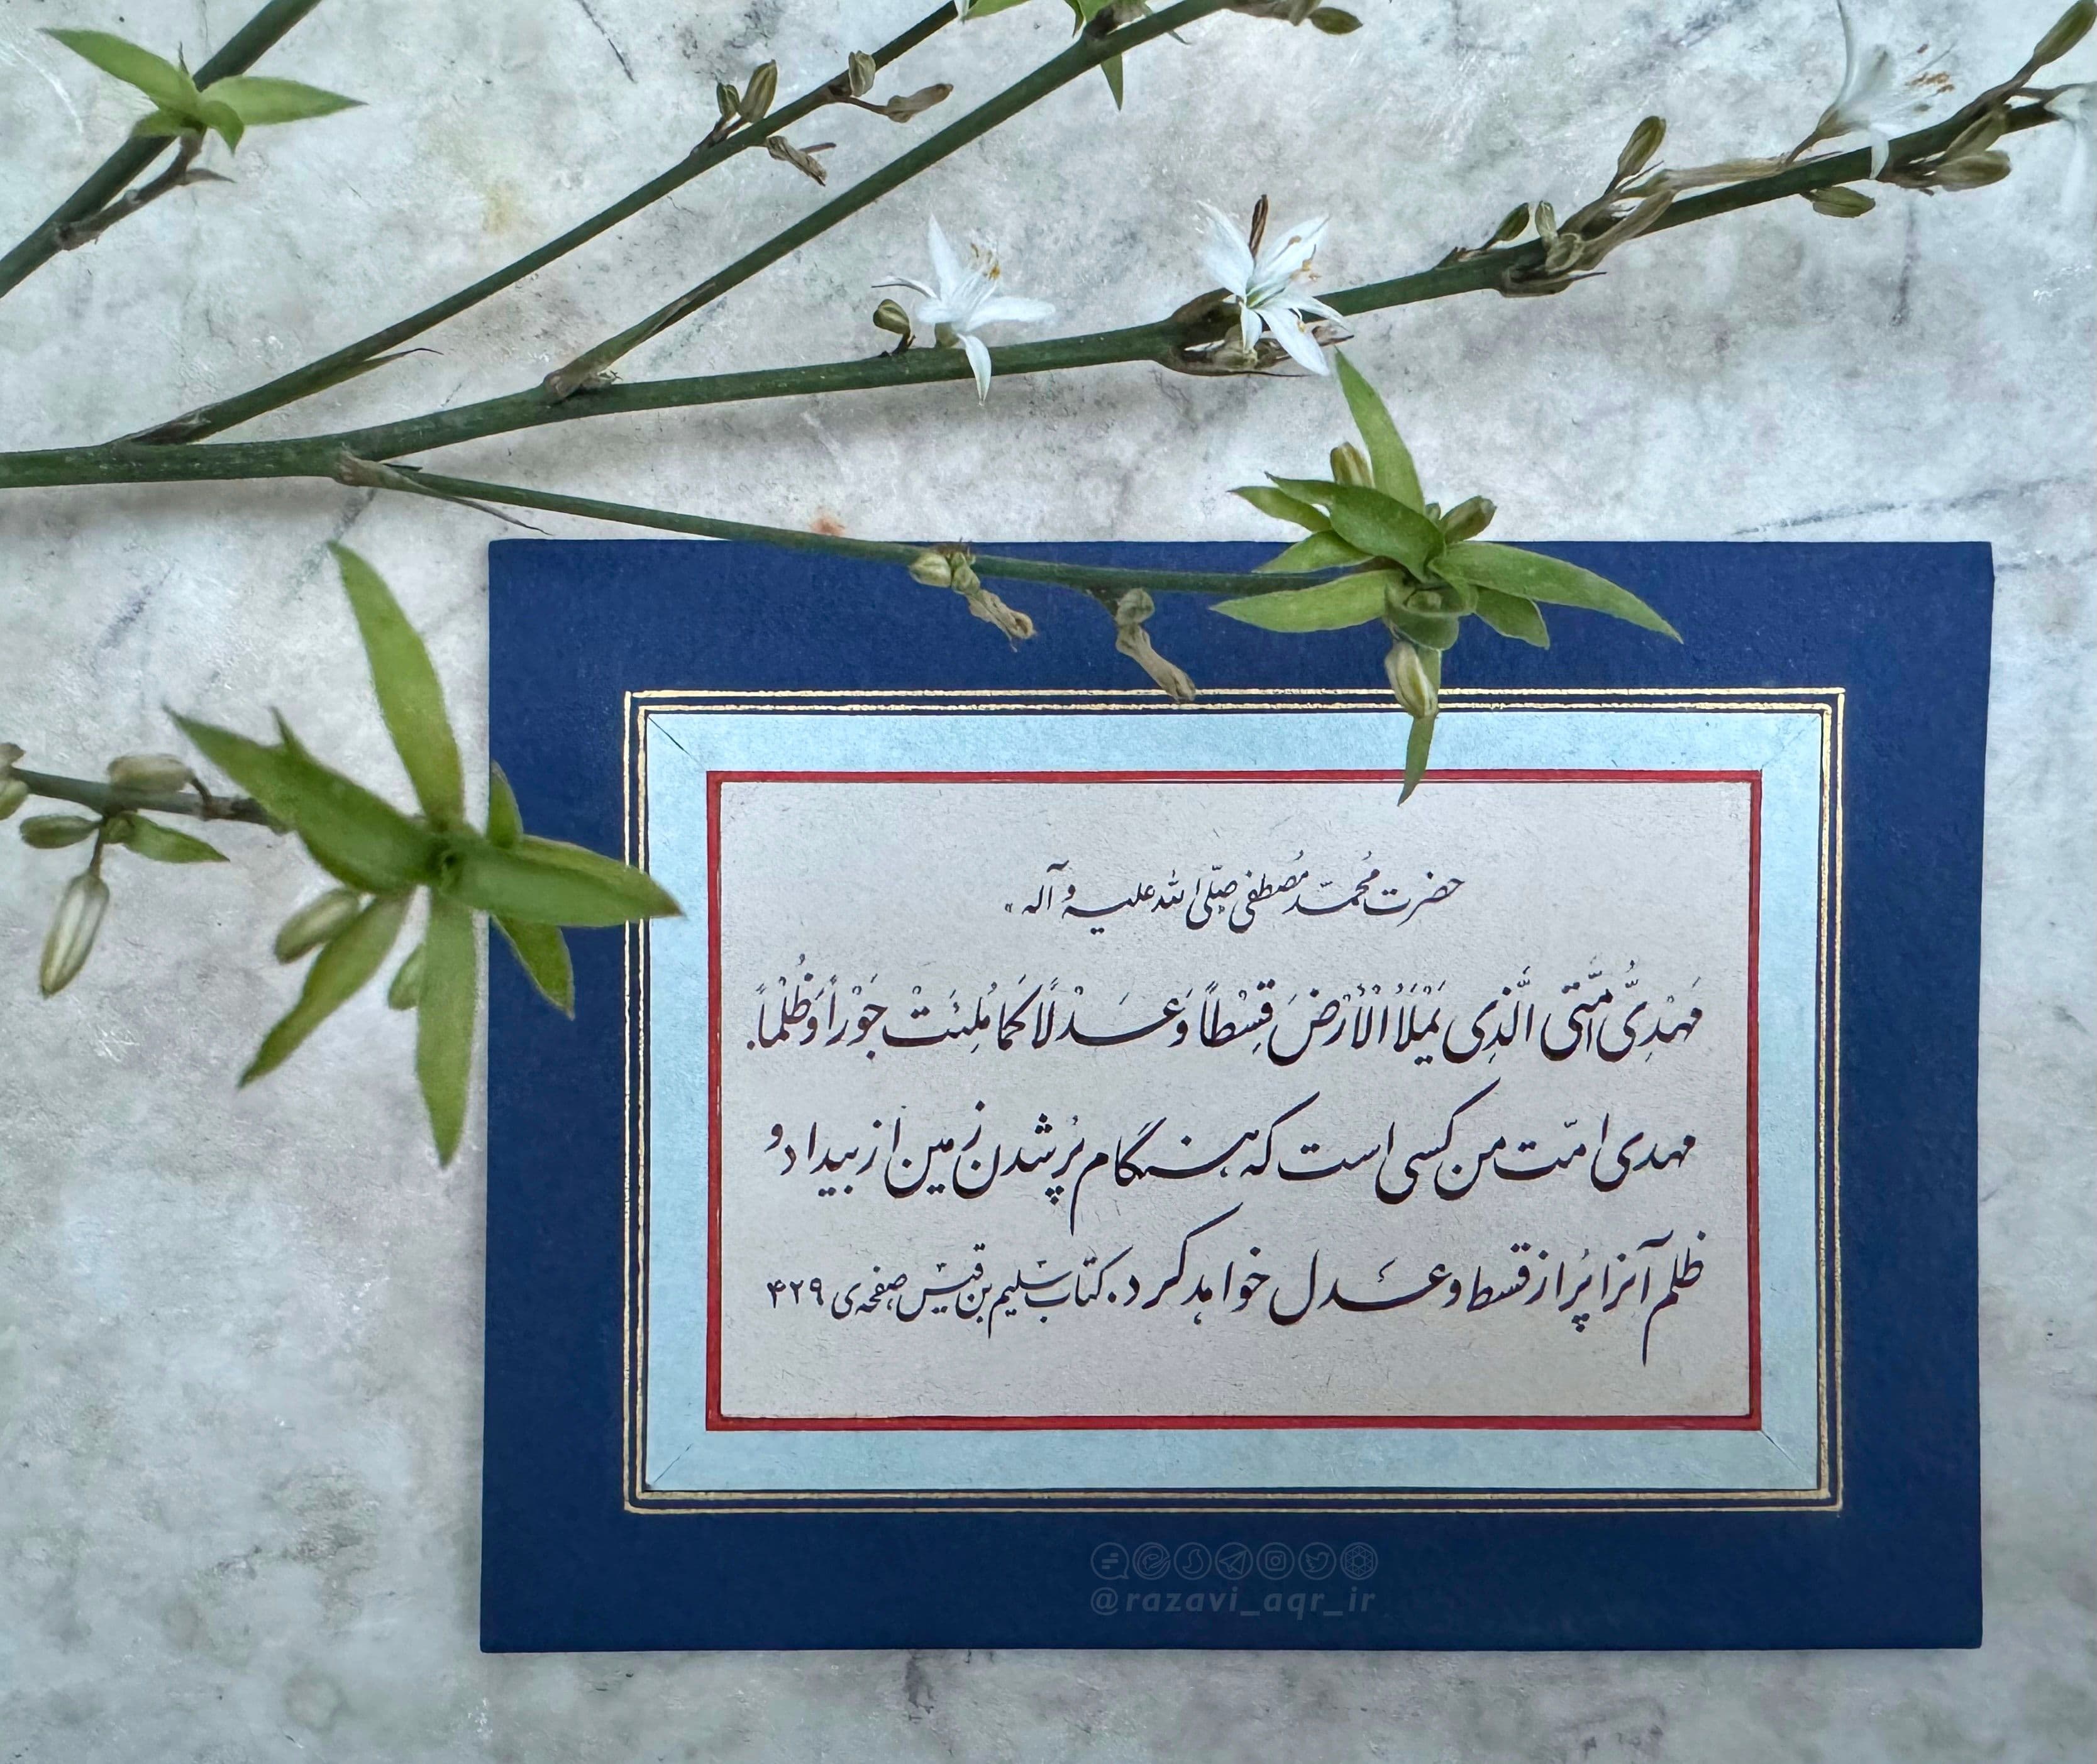 حضرت مُحمّد مُصطفی صلّی الله علیه و آله
مَهْدِیُّ اُمَّتی الَّذِی یَمْلَاُ الْاَرْضَ قِسْطاً وَ عَدْلًا کَما مُلِئَتْ جَوْراً وَ ظُلْماً.
مهدی امّت من کسی است که هنگام پُر شدن زمین از بیداد و
ظلم آنرا پُر از قسط و عدل خواهد کرد. کتاب سلیم بن قیس صفحه‌ی ۴۲۹
@razavi_aqr_ir